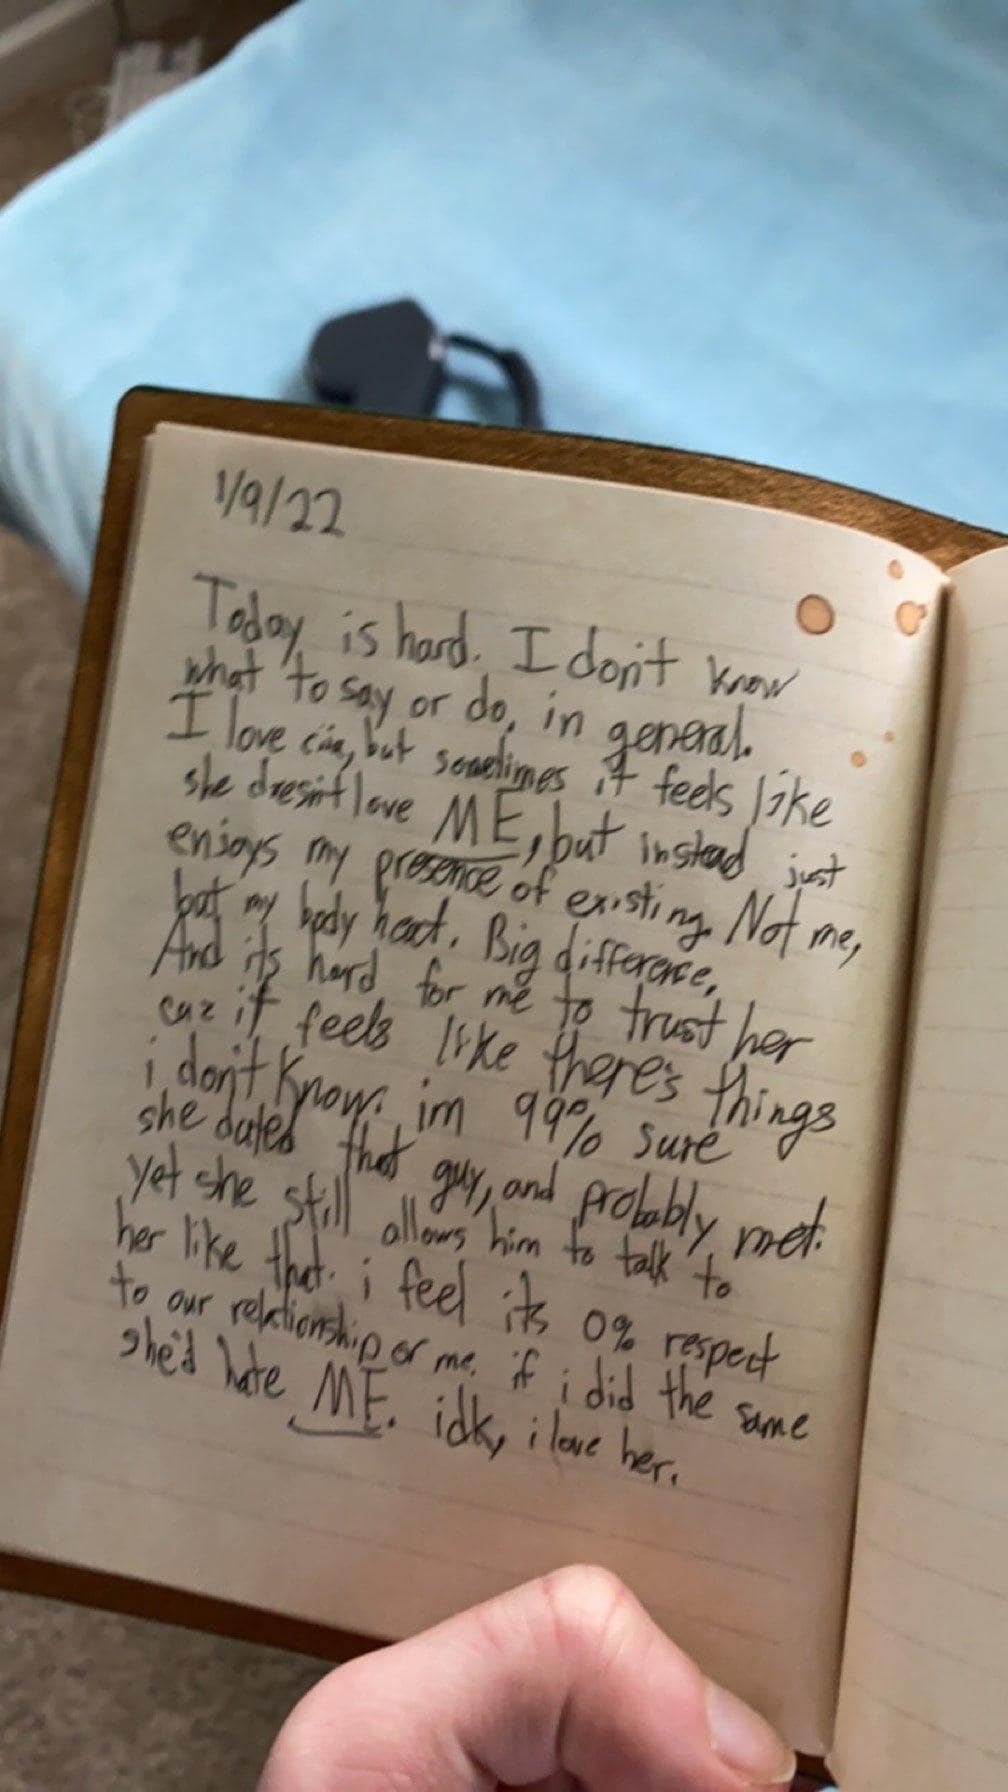 1/9/22
Today is hard. I don't know
what to say or do, in general.
I love but sometimes it feels like
she doesn't love ME, but instead just
enjoys my presence of existing. Not me,
but my body heat. Big difference.
And its hard for me to trust her
cuz it feels like there's things
i don't know. im 99% sure
she dated that guy, and probably met.
yet she still allows him to talk to
her like that. i feel its 0% respect
to our relationship or me. if i did the same
she'd hate ME. idk, i love her.